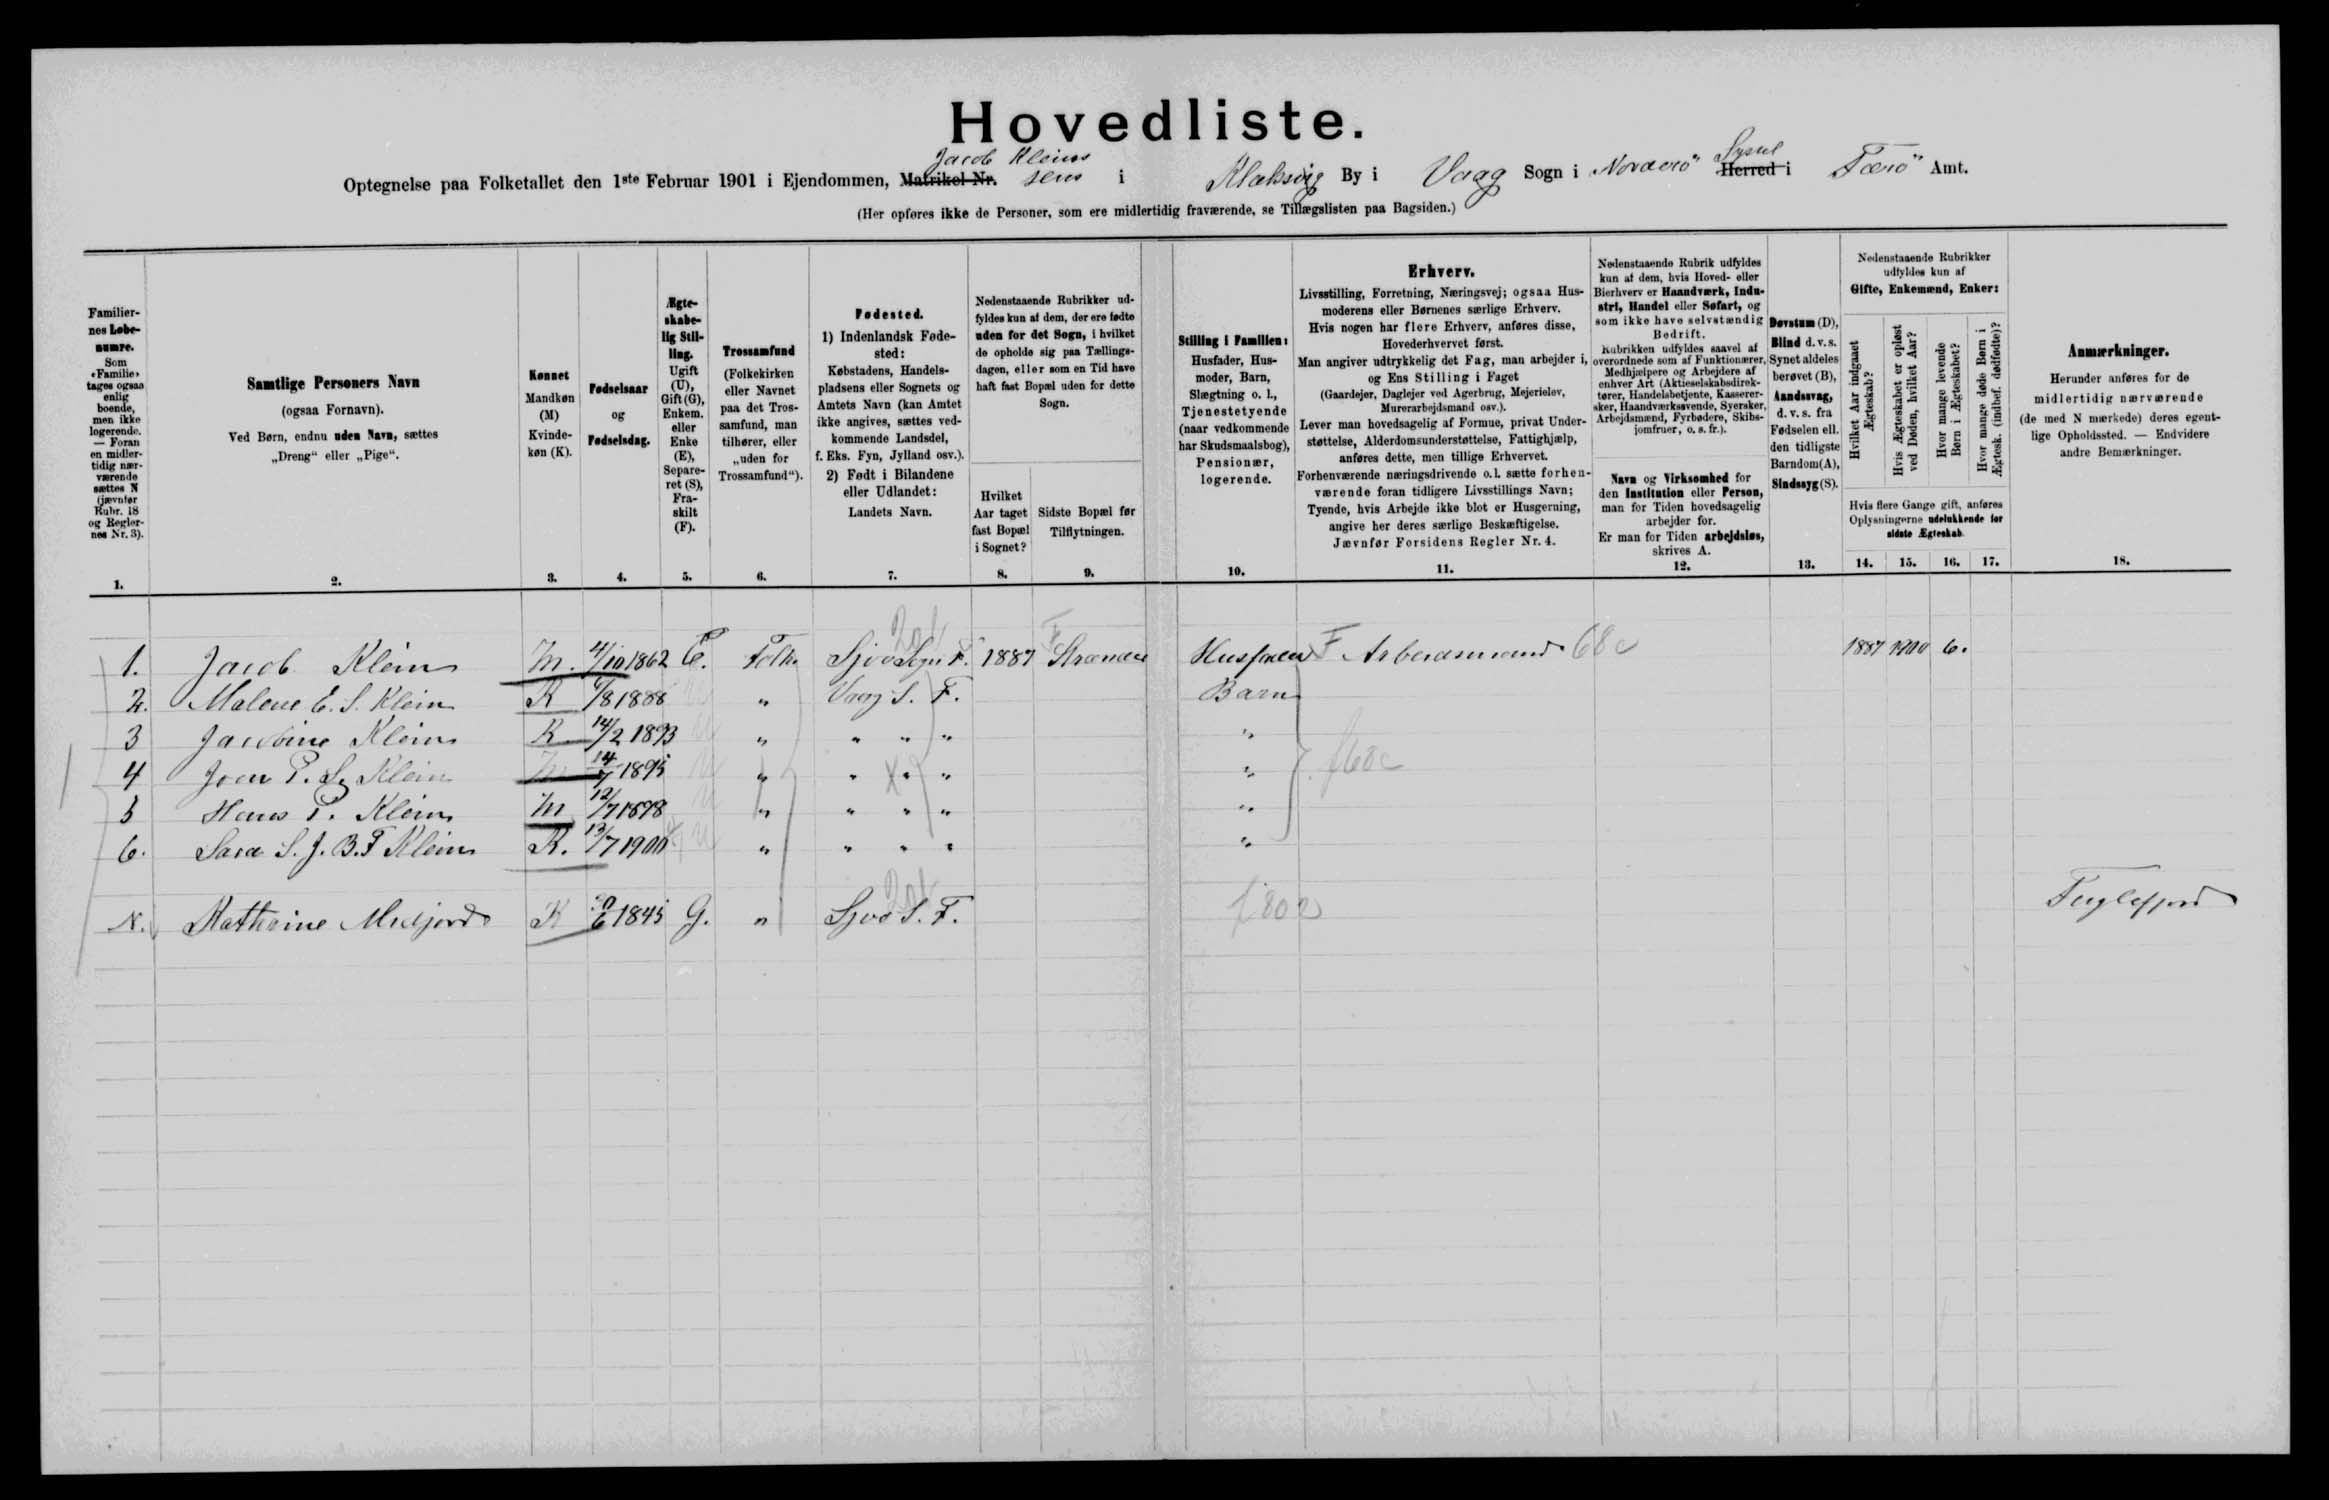 Hovedliste.
Jacob Kleins
Optegnelse paa Folketallet den 1ste Februar 1901 i Ejendommen, Matrikel Nr. i Klaksvig By i Vaag Sogn i Norderö Syssel Herred i Færö Amt.
(Her opføres ikke de Personer, som ere midlertidig fraværende, se Tillægslisten paa Bagsiden.)
Familiernes Løbenumre.
Som «Familie» tages ogsaa enlig boende, men ikke logerende. — Foran en midlertidig nærværende sættes N (jævnfør Rubr. 18 og Reglernes Nr. 3).
1.
Samtlige Personers Navn
(ogsaa Fornavn).
Ved Børn, endnu uden Navn, sættes
„Dreng“ eller „Pige“.
2.
Kønnet
Mandkøn (M)
Kvindekøn (K).
3.
Fødselsaar
og
Fødselsdag.
4.
Ægteskabelig Stilling.
Ugift (U), Gift (G), Enkem. eller Enke (E), Separeret (S), Fraskilt (F).
5.
Trossamfund
(Folkekirken eller Navnet paa det Trossamfund, man tilhører, eller „uden for Trossamfund“).
6.
Fødested.
1) Indenlandsk Fødested:
Købstadens, Handelspladsens eller Sognets og Amtets Navn (kan Amtet ikke angives, sættes vedkommende Landsdel, f. Eks. Fyn, Jylland osv.).
2) Født i Bilandene eller Udlandet:
Landets Navn.
7.
Nedenstaaende Rubrikker udfyldes kun af dem, der ere fødte uden for det Sogn, i hvilket de opholde sig paa Tællingsdagen, eller som en Tid have haft fast Bopæl uden for dette Sogn.
Hvilket Aar taget fast Bopæl i Sognet?
8.
Sidste Bopæl før Tilflytningen.
9.
Stilling i Familien:
Husfader, Husmoder, Barn, Slægtning o. l., Tjenestetyende (naar vedkommende har Skudsmaalsbog), Pensionær, logerende.
10.
Erhverv.
Livsstilling, Forretning, Næringsvej; ogsaa Husmoderens eller Børnenes særlige Erhverv.
Hvis nogen har flere Erhverv, anføres disse, Hovederhvervet først.
Man angiver udtrykkelig det Fag, man arbejder i, og Ens Stilling i Faget
(Gaardejer, Daglejer ved Agerbrug, Mejerielev, Murerarbejdsmand osv.).
Lever man hovedsagelig af Formue, privat Understøttelse, Alderdomsunderstøttelse, Fattighjælp, anføres dette, men tillige Erhvervet.
Forhenværende næringsdrivende o. l. sætte forhenværende foran tidligere Livsstillings Navn;
Tyende, hvis Arbejde ikke blot er Husgerning, angive her deres særlige Beskæftigelse.
Jævnfør Forsidens Regler Nr. 4.
11.
Nedenstaaende Rubrik udfyldes kun af dem, hvis Hoved- eller Bierhverv er Haandværk, Industri, Handel eller Søfart, og som ikke have selvstændig Bedrift.
Rubrikken udfyldes saavel af overordnede som af Funktionærer, Medhjælpere og Arbejdere af enhver Art (Aktieselskabsdirektører, Handelsbetjente, Kasserersker, Haandværkssvende, Syersker, Arbejdsmænd, Fyrbødere, Skibsjomfruer, o. s. fr.).
Navn og Virksomhed for den Institution eller Person, man for Tiden hovedsagelig arbejder for.
Er man for Tiden arbejdsløs, skrives A.
12.
Døvstum (D),
Blind d. v. s. Synet aldeles berøvet (B),
Aandssvag, d. v. s. fra Fødselen ell. den tidligste Barndom (A),
Sindssyg (S).
13.
Nedenstaaende Rubrikker udfyldes kun af
Gifte, Enkemænd, Enker:
Hvilket Aar indgaaet Ægteskab?
Hvis Ægteskabet er opløst ved Døden, hvilket Aar?
Hvor mange levende Børn i Ægteskabet?
Hvor mange døde Børn i Ægtesk. (indbef. dødfødte)?
Hvis flere Gange gift, anføres Oplysningerne udelukkende for sidste Ægteskab.
14. 15. 16. 17.
Anmærkninger.
Herunder anføres for de midlertidig nærværende (de med N mærkede) deres egentlige Opholdssted. — Endvidere andre Bemærkninger.
18.
1. Jacob Klein M. 4/10 1862 E. Folk. Sjov Sogn F. 1887 Strander Husfader F Arbeidsmand 68 c 1887 1900 6.
2. Malene E. S. Klein K /8 1888 U " Vaag S. F. Barn
3 Jacobine Klein K 14/2 1893 U " " " " "
4 Joen P. Klein M 14/7 1895 U " " " " " f68c
5 Hans P. Klein M 12/7 1898 U " " " " "
6. Sara S. J. B. F Klein K. 13/7 1900 U " " " " "
N. Kathrine Midjord K 1845 G. " Sjov S. F. Fuglefjord